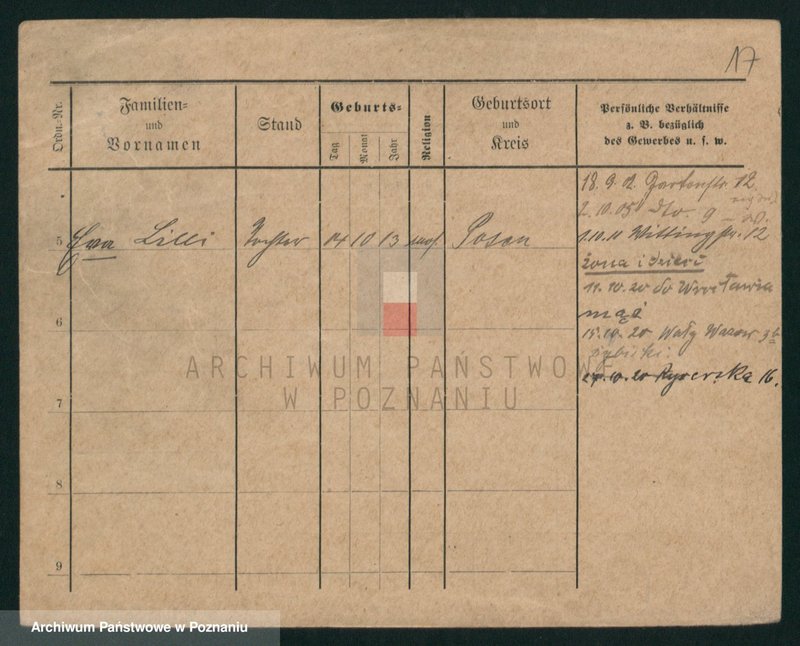 17
Ordn.-Nr.
Familien-
und
Vornamen
Stand
Geburts-
Tag
Monat
Jahr
Religion
Geburtsort
und
Kreis
Persönliche Verhältnisse
z. B. bezüglich
des Gewerbes u. s. w.
18.9.02. Gartenstr. 12.
2.10.05 dto. 9
5 Eva Lilli Tochter 14 10 13 mos. Posen
1.10.11 Wittingstr. 12
żona i dzieci
11.10.20 do Wrocławia
mąż
6
15.10.20 Wały Wazow 3
27.10.20 Rycerska 16.
7
8
9
ARCHIWUM PAŃSTWOWE
W POZNANIU
Archiwum Państwowe w Poznaniu